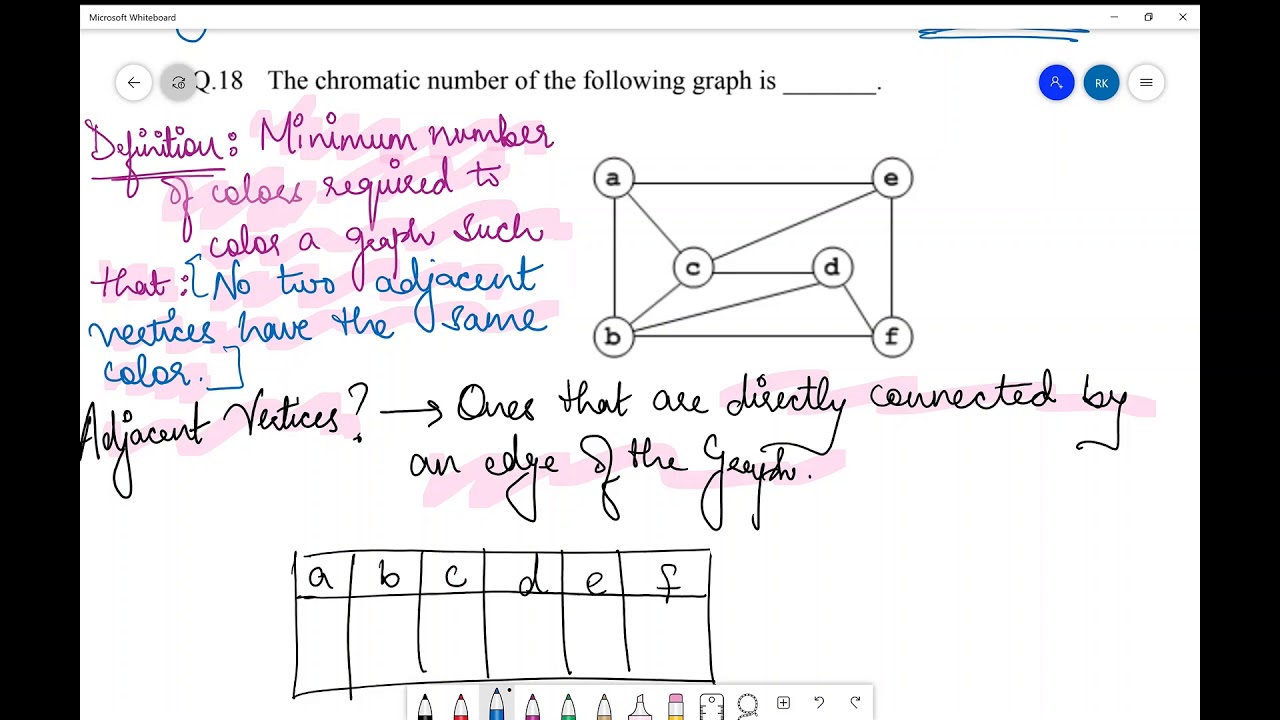 Microsoft Whiteboard
Q.18 The chromatic number of the following graph is ________.
RK
Definition: Minimum number
of colors required to
color a graph such
that: [No two adjacent
vertices have the same
color.]
a
e
c
d
b
f
Adjacent Vertices? → Ones that are directly connected by
an edge of the Graph.
a b c d e f